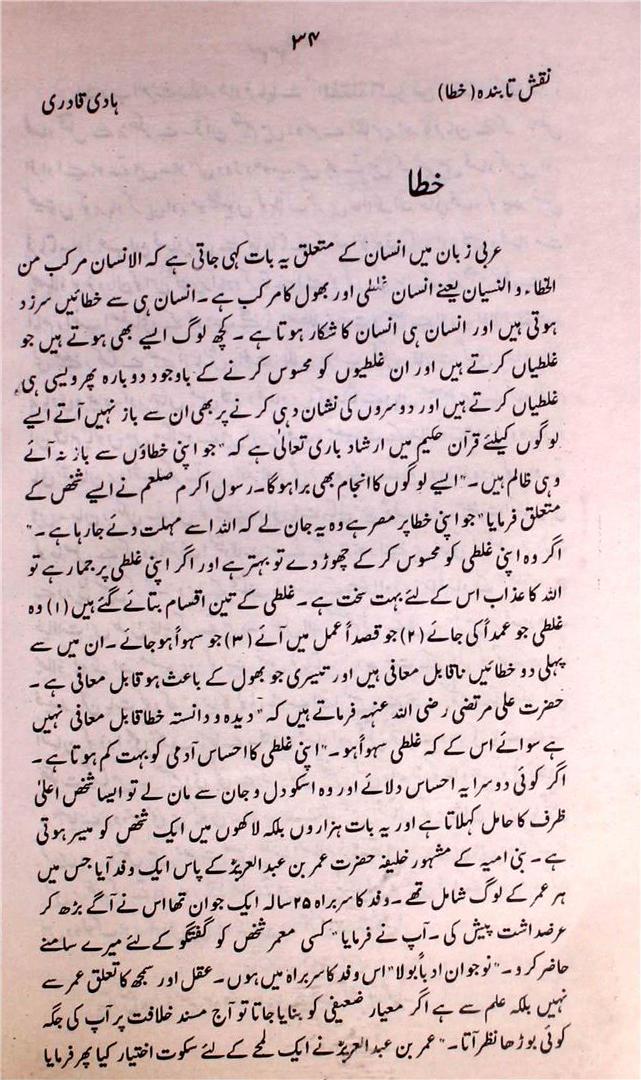 ۳۴
نقش تابندہ (خطا)
ہادی قادری
خطا
عربی زبان میں انسان کے متعلق یہ بات کہی جاتی ہے کہ الانسان مرکب من
الخطاء و النسیان یعنے انسان غلطی اور بھول کا مرکب ہے۔ انسان ہی سے خطائیں سرزد
ہوتی ہیں اور انسان ہی انسان کا شکار ہوتا ہے۔ کچھ لوگ ایسے بھی ہوتے ہیں جو
غلطیاں کرتے ہیں اور ان غلطیوں کو محسوس کرنے کے باوجود دوبارہ پھر ویسی ہی
غلطیاں کرتے ہیں اور دوسروں کی نشان دہی کرنے پر بھی ان سے باز نہیں آتے ایسے
لوگوں کیلئے قرآن حکیم میں ارشاد باری تعالیٰ ہے کہ "جو اپنی خطاؤں سے باز نہ آئے
وہی ظالم ہیں۔" ایسے لوگوں کا انجام بھی برا ہوگا۔ رسول اکرم صلعم نے ایسے شخص کے
متعلق فرمایا "جو اپنی خطا پر مصر ہے وہ یہ جان لے کہ اللہ اسے مہلت دئے جارہا ہے۔"
اگر وہ اپنی غلطی کو محسوس کرکے چھوڑ دے تو بہتر ہے اور اگر اپنی غلطی پر جما رہے تو
اللہ کا عذاب اس کے لئے بہت سخت ہے۔ غلطی کے تین اقسام بتائے گئے ہیں (۱) وہ
غلطی جو عمداً کی جائے (۲) جو قصداً عمل میں آئے (۳) جو سہواً ہوجائے۔ ان میں سے
پہلی دو خطائیں ناقابل معافی ہیں اور تیسری جو بھول کے باعث ہو قابل معافی ہے۔
حضرت علی مرتضی رضی اللہ عنہہ فرماتے ہیں کہ "دیدہ و دانستہ خطا قابل معافی نہیں
ہے سوائے اس کے کہ غلطی سہواً ہو۔" اپنی غلطی کا احساس آدمی کو بہت کم ہوتا ہے۔
اگر کوئی دوسرا یہ احساس دلائے اور وہ اسکو دل و جان سے مان لے تو ایسا شخص اعلیٰ
ظرف کا حامل کہلاتا ہے اور یہ بات ہزاروں بلکہ لاکھوں میں ایک شخص کو میسر ہوتی
ہے۔ بنی امیہ کے مشہور خلیفہ حضرت عمر بن عبدالعزیزؒ کے پاس ایک وفد آیا جس میں
ہر عمر کے لوگ شامل تھے۔ وفد کا سربراہ ۲۵ سالہ ایک جوان تھا اس نے آگے بڑھ کر
عرضداشت پیش کی۔ آپ نے فرمایا "کسی معمر شخص کو گفتگو کے لئے میرے سامنے
حاضر کرو۔" نوجوان ادباً بولا "اس وفد کا سربراہ میں ہوں۔ عقل اور سمجھ کا تعلق عمر سے
نہیں بلکہ علم سے ہے اگر معیار ضعیفی کو بنایا جاتا تو آج مسند خلافت پر آپ کی جگہ
کوئی بوڑھا نظر آتا۔" عمر بن عبدالعزیزؒ نے ایک لمحے کے لئے سکوت اختیار کیا پھر فرمایا